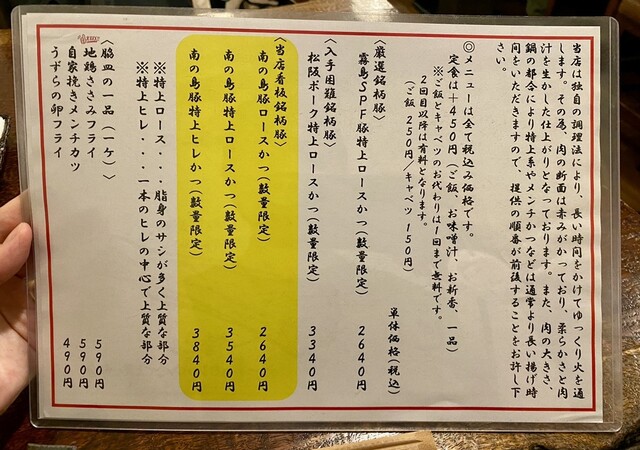 当店は独自の調理法により、長い時間をかけてゆっくり火を通
します。その為、肉の断面は赤みがかっており、柔らかさと肉
汁を生かした仕上がりとなっております。また、肉の大きさ、
鍋の都合により特上系やメンチかつなどは通常より長い揚げ時
間をいただきますので、提供の順番が前後することをお許し下
さい。
◎メニューは全て税込み価格です。
定食は＋450円（ご飯、お味噌汁、お新香、一品）
※ご飯とキャベツのお代わりは1回まで無料です。
2回目以降は有料となります。
（ご飯 250円／キャベツ 150円）
単体価格（税込）
〈厳選銘柄豚〉
霧島SPF豚特上ロースかつ（数量限定） 2640円
〈入手困難銘柄豚〉
松阪ポーク特上ロースかつ（数量限定） 3340円
〈当店看板銘柄豚〉
南の島豚ロースかつ（数量限定） 2640円
南の島豚特上ロースかつ（数量限定） 3540円
南の島豚特上ヒレかつ（数量限定） 3840円
※特上ロース・・・・脂身のサシが多く上質な部分
※特上ヒレ・・・・一本のヒレの中心で上質な部分
〈脇皿の一品（一ケ）〉
地鶏ささみフライ 590円
自家挽きメンチカツ 590円
うずらの卵フライ 490円